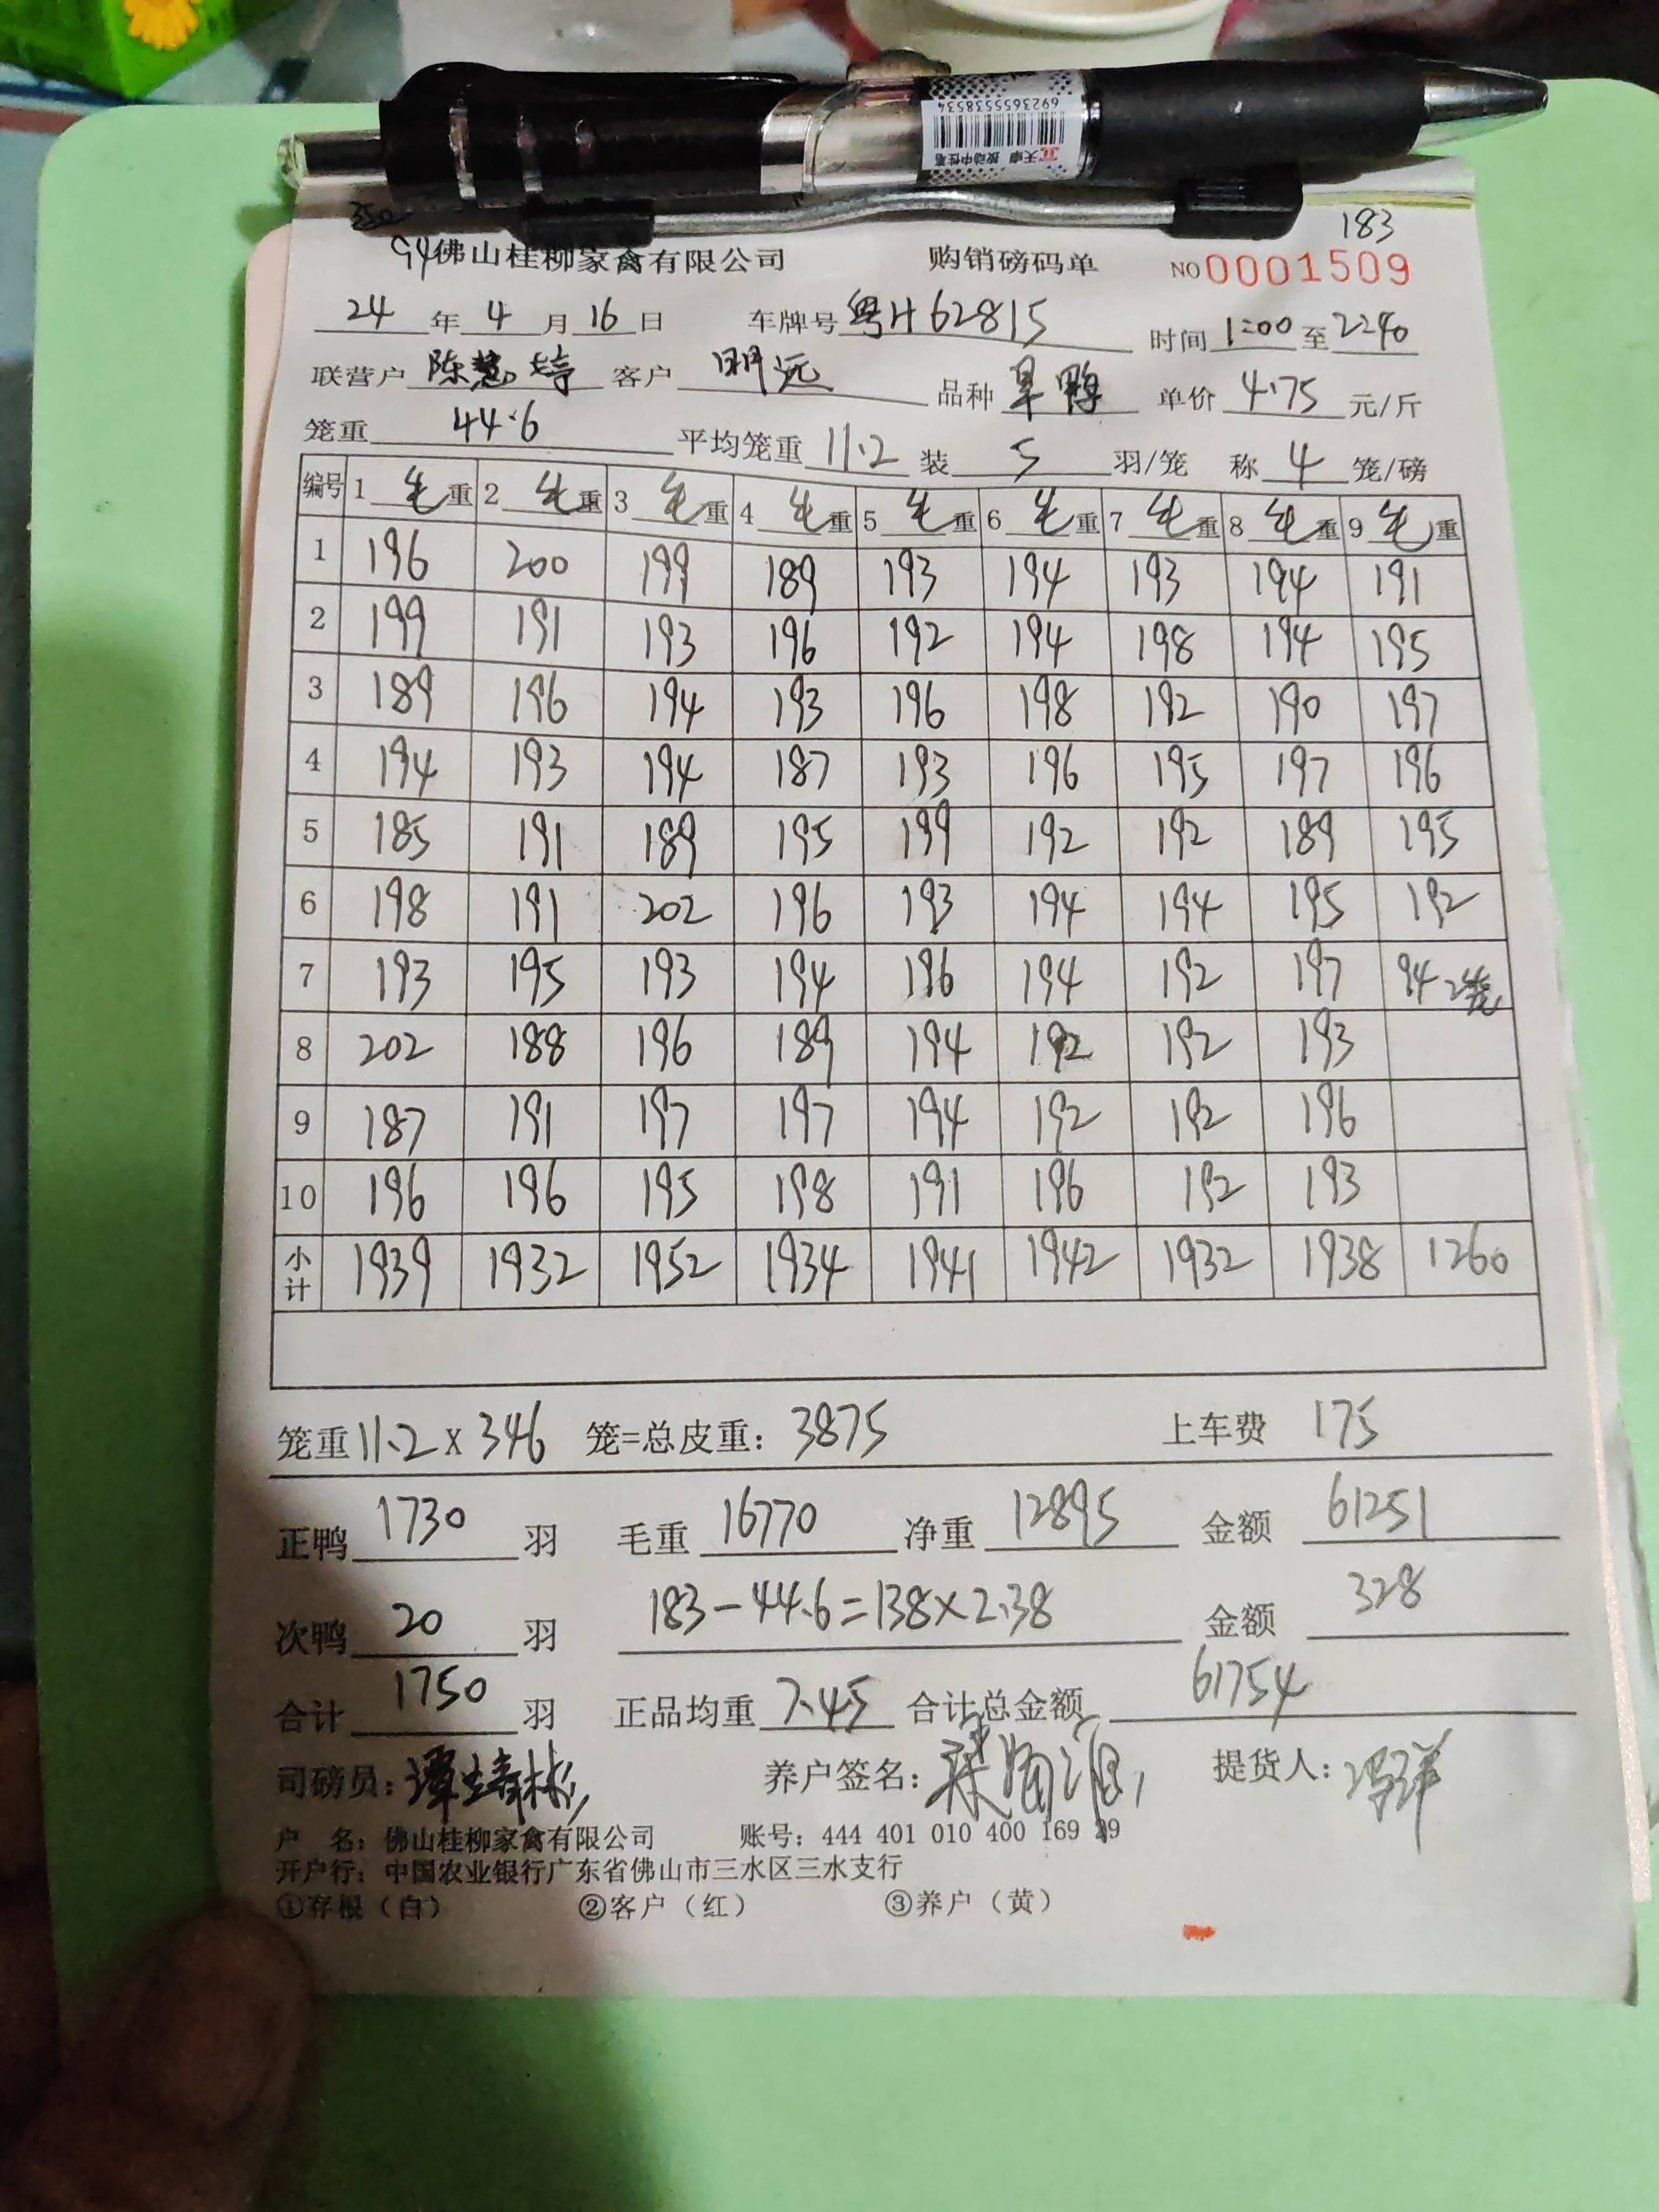 6923655538534
天卓 按动中性笔
183
94 佛山桂柳家禽有限公司 购销磅码单 NO 0001509
24 年 4 月 16 日 车牌号 粤H62815 时间 1:00 至 2240
联营户 陈慧婷 客户 明远 品种 旱鸭 单价 4.75 元/斤
笼重 44.6 平均笼重 11.2 装 5 羽/笼 称 4 笼/磅
编号 1 毛重 2 毛重 3 毛重 4 毛重 5 毛重 6 毛重 7 毛重 8 毛重 9 毛重
1 196 200 199 189 193 194 193 194 191
2 199 191 193 196 192 194 198 194 195
3 189 196 194 193 196 198 192 190 197
4 194 193 194 187 193 196 195 197 196
5 185 191 189 195 199 192 192 189 195
6 198 191 202 196 193 194 194 195 192
7 193 195 193 194 196 194 192 197 94 2笼
8 202 188 196 189 194 192 192 193
9 187 191 197 197 194 192 192 196
10 196 196 195 198 191 196 192 193
小计 1939 1932 1952 1934 1941 1942 1932 1938 1260
笼重 11.2 x 346 笼=总皮重: 3875 上车费 175
正鸭 1730 羽 毛重 16770 净重 12895 金额 61251
次鸭 20 羽 183-44.6=138×2.38 金额 328
合计 1750 羽 正品均重 7.45 合计总金额 61754
司磅员: 养户签名: 提货人:
户 名: 佛山桂柳家禽有限公司 账号: 444 401 010 400 169 29
开户行: 中国农业银行广东省佛山市三水区三水支行
①存根（白） ②客户（红） ③养户（黄）